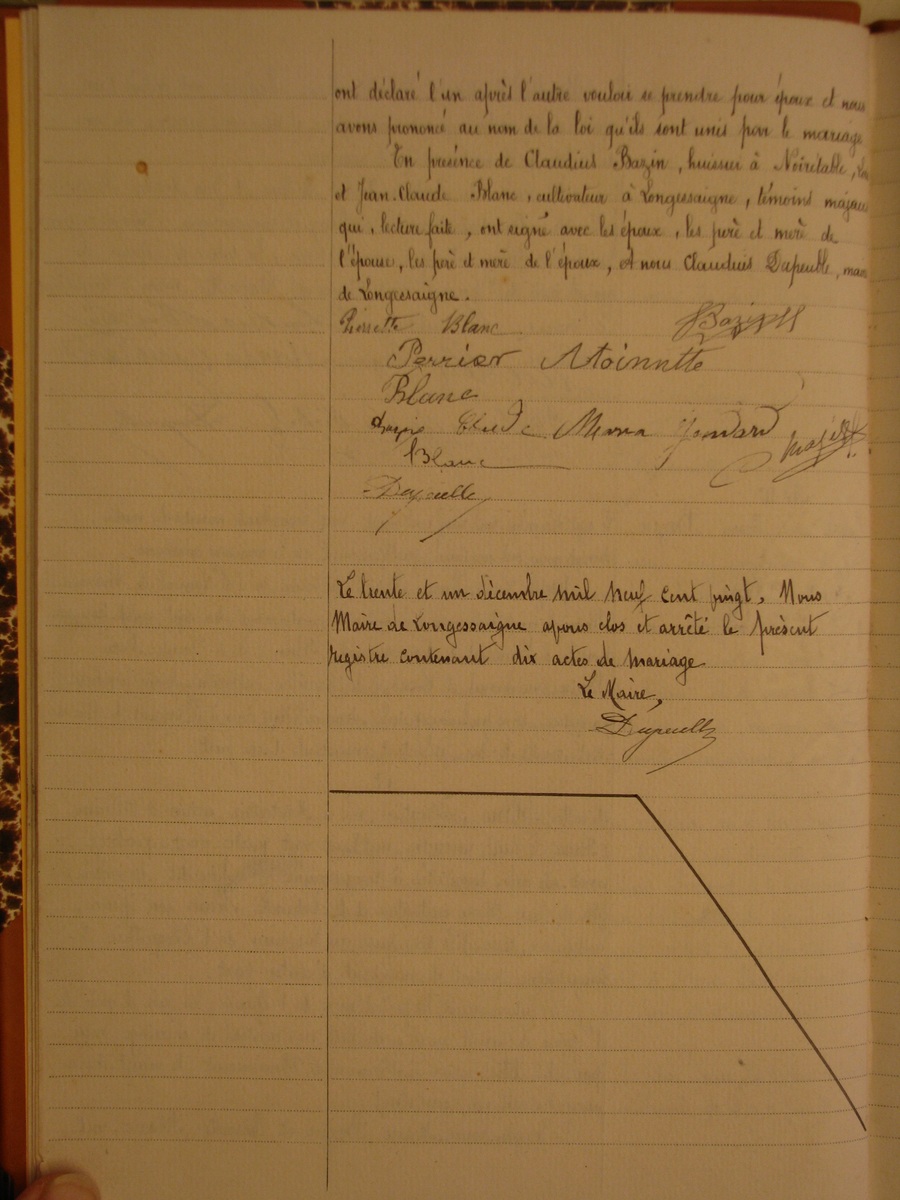 ont déclaré l'un après l'autre vouloir se prendre pour époux et nous
avons prononcé au nom de la loi qu'ils sont unis par le mariage
En présence de Claudius Bazin, huissier à Noirétable,
et Jean-Claude Blanc, cultivateur à Longessaigne, témoins majeurs
qui, lecture faite, ont signé avec les époux, les père et mère de
l'épouse, les père et mère de l'époux, et nous Claudius Dupeuble, maire
de Longessaigne.
Pierrette Blanc Bazin
Perrier Atoinntte
Blanc
Claude Maria
Blanc
Dupeuble
Le trente et un décembre mil neuf cent vingt, Nous
Maire de Longessaigne avons clos et arrêté le présent
registre contenant dix actes de mariage
Le Maire,
Dupeuble